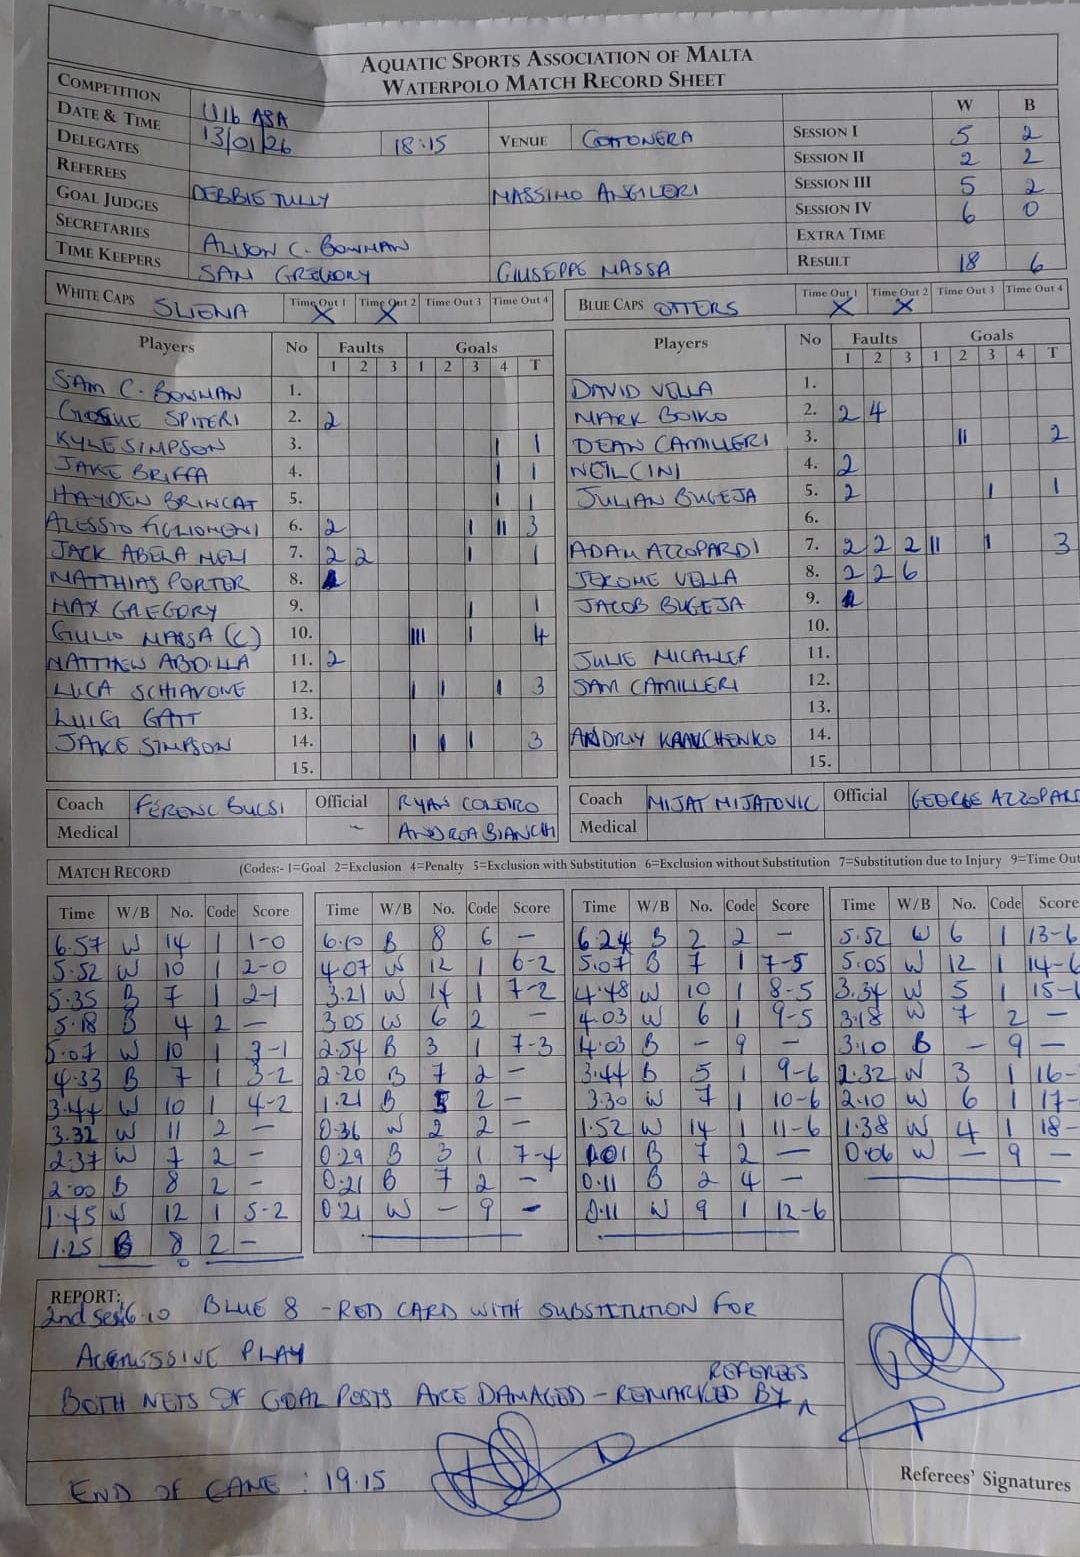 AQUATIC SPORTS ASSOCIATION OF MALTA
WATERPOLO MATCH RECORD SHEET
COMPETITION U16 ASA W B
DATE & TIME 13/01/26 18:15 VENUE COTTONERA SESSION I 5 2
DELEGATES SESSION II 2 2
REFEREES DEBBIE TULLY MASSIMO ANGILERI SESSION III 5 2
GOAL JUDGES SESSION IV 6 0
SECRETARIES ALISON C. BOWMAN EXTRA TIME
TIME KEEPERS SAM GREGORY GIUSEPPE MASSA RESULT 18 6
WHITE CAPS SLIEMA Time Out 1 X Time Out 2 X Time Out 3 Time Out 4 BLUE CAPS OTTERS Time Out 1 X Time Out 2 X Time Out 3 Time Out 4
Players No Faults Goals Players No Faults Goals
1 2 3 1 2 3 4 T 1 2 3 1 2 3 4 T
SAM C. BOWMAN 1. DAVID VELLA 1.
GIOSUE SPITERI 2. 2 MARK BOIKO 2. 2 4
KYLE SIMPSON 3. I 1 DEAN CAMILLERI 3. II 2
JAKE BRIFFA 4. I 1 NEIL CINI 4. 2
HAYDEN BRINCAT 5. I 1 JULIAN BUGEJA 5. 2 I 1
ALESSIO FIGLIOMENI 6. 2 I II 3 6.
JACK ABELA MELI 7. 2 2 I 1 ADAM AZZOPARDI 7. 2 2 2 II I 3
MATTHIAS PORTER 8. JEROME VELLA 8. 2 2 6
MAX GREGORY 9. I 1 JACOB BUGEJA 9.
GIULIO MASSA (C) 10. III I 4 10.
MATTHEW ABDILLA 11. 2 JULIE MICALLEF 11.
LUCA SCHIAVONE 12. I I I 3 SAM CAMILLERI 12.
LUIGI GATT 13. 13.
JAKE SIMPSON 14. I I I 3 ANDRIY KRAVCHENKO 14.
15. 15.
Coach FERENC BUCSI Official RYAN COLEIRO Coach MIJAT MIJATOVIC Official GEORGE AZZOPARD
Medical - ANDREA BIANCHI Medical
MATCH RECORD (Codes:- 1=Goal 2=Exclusion 4=Penalty 5=Exclusion with Substitution 6=Exclusion without Substitution 7=Substitution due to Injury 9=Time Out
Time W/B No. Code Score Time W/B No. Code Score Time W/B No. Code Score Time W/B No. Code Score
6.57 W 14 1 1-0 6.10 B 8 6 - 6.24 B 2 2 - 5.52 W 6 1 13-6
5.52 W 10 1 2-0 4.07 W 12 1 6-2 5.07 B 7 1 7-5 5.05 W 12 1 14-6
5.35 B 7 1 2-1 3.21 W 14 1 7-2 4.48 W 10 1 8-5 3.34 W 5 1 15-
5.18 B 4 2 - 3.05 W 6 2 - 4.03 W 6 1 9-5 3.18 W 7 2 -
5.07 W 10 1 3-1 2.54 B 3 1 7-3 4.03 B - 9 - 3.10 B - 9 -
4.33 B 7 1 3-2 2.20 B 7 2 - 3.44 B 5 1 9-6 2.32 W 3 1 16-
3.44 W 10 1 4-2 1.21 B 5 2 - 3.30 W 7 1 10-6 2.10 W 6 1 17-
3.32 W 11 2 - 0.36 W 2 2 - 1.52 W 14 1 11-6 1.38 W 4 1 18-
2.37 W 7 2 - 0.29 B 3 1 7-4 1.01 B 7 2 - 0.06 W - 9 -
2.00 B 8 2 - 0.21 B 7 2 - 0.11 B 2 4 -
1.45 W 12 1 5-2 0.21 W - 9 - 0.11 W 9 1 12-6
1.25 B 8 2 -
REPORT:
2nd Ses: 6.10 BLUE 8 - RED CARD WITH SUBSTITUTION FOR
AGGRESSIVE PLAY
BOTH NETS OF GOAL POSTS ARE DAMAGED - REMARKED BY REFEREES
END OF GAME : 19.15
Referees' Signatures